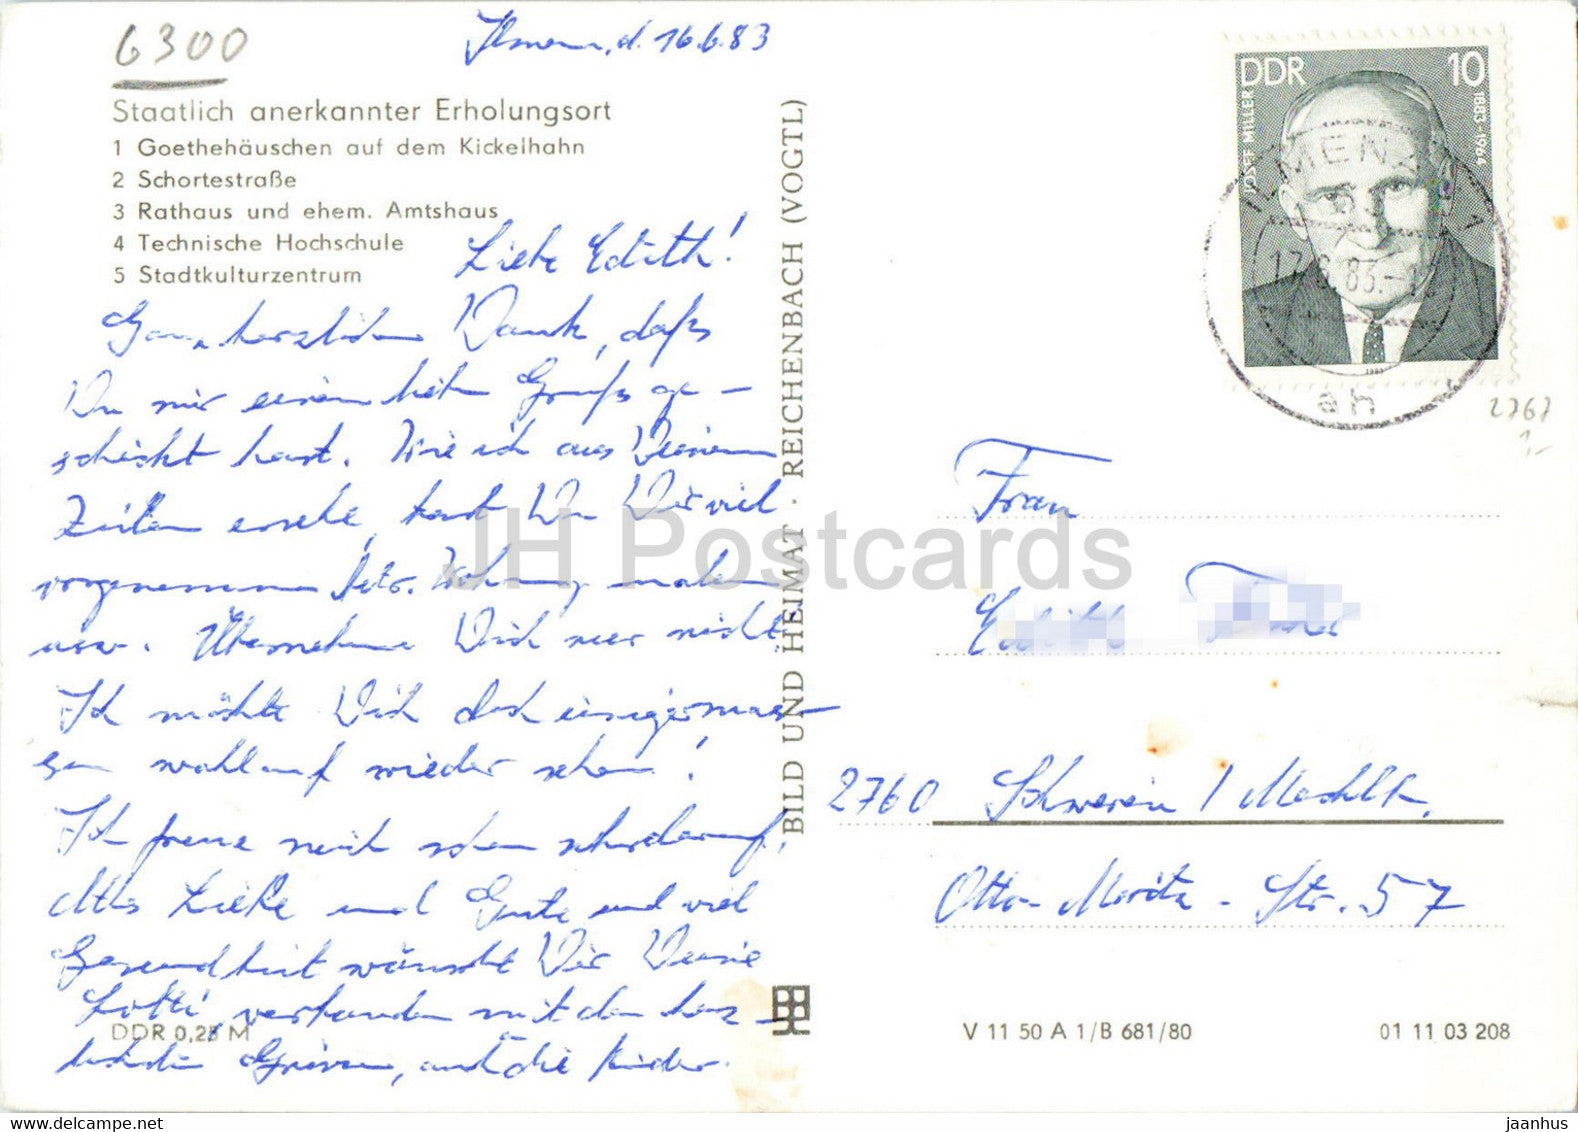 6300
Ilmenau, d. 16.6.83
Staatlich anerkannter Erholungsort
1 Goethehäuschen auf dem Kickelhahn
2 Schortestraße
3 Rathaus und ehem. Amtshaus
4 Technische Hochschule
5 Stadtkulturzentrum
Liebe Edith!
Ganz herzlichen Dank, daß
Du mir einen lieben Gruß ge-
schickt hast. Wie ich aus Deinen
Zeilen ersehe, hast Du Dir viel
vorgenommen betr. Wohnung malen
usw. Übernehme Dich nur nicht,
Ich möchte Dich doch einigermas-
sen wohlauf wieder sehen!
Ich freue mich schon sehr darauf.
Alles Liebe und Gute und viel
Gesundheit wünscht Dir Deine
Lotti, verbunden mit den herz-
lichsten Grüssen, auch die Kinder.
DDR 0,25 M
BILD UND HEIMAT · REICHENBACH (VOGTL)
DDR 10
JOSEF MILLER 1883-1964
ILMENAU
17.6.83.-
ah
2767
1,-
Frau
Edith
2760 Schwerin / Mecklb.
Otto-Moritz-Str. 57
V 11 50 A 1/B 681/80
01 11 03 208
JH Postcards
delcampe.net
jaanhus